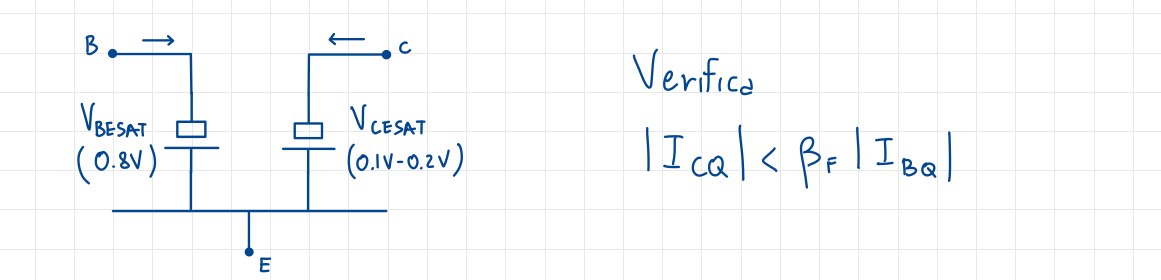 B → ← C
V_BESAT
(0.8V)
V_CESAT
(0.1V-0.2V)
E
Verifica
|I_CQ| < β_F |I_BQ|